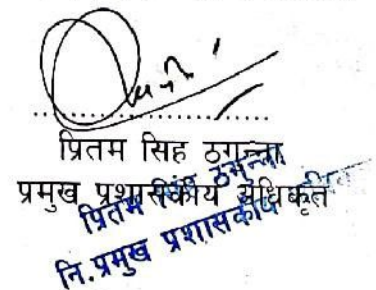 प्रितम सिह ठगुन्ना
प्रमुख प्रशासकीय अधिकृत
प्रितम सिंह ठगुन्ना
नि.प्रमुख प्रशासकीय